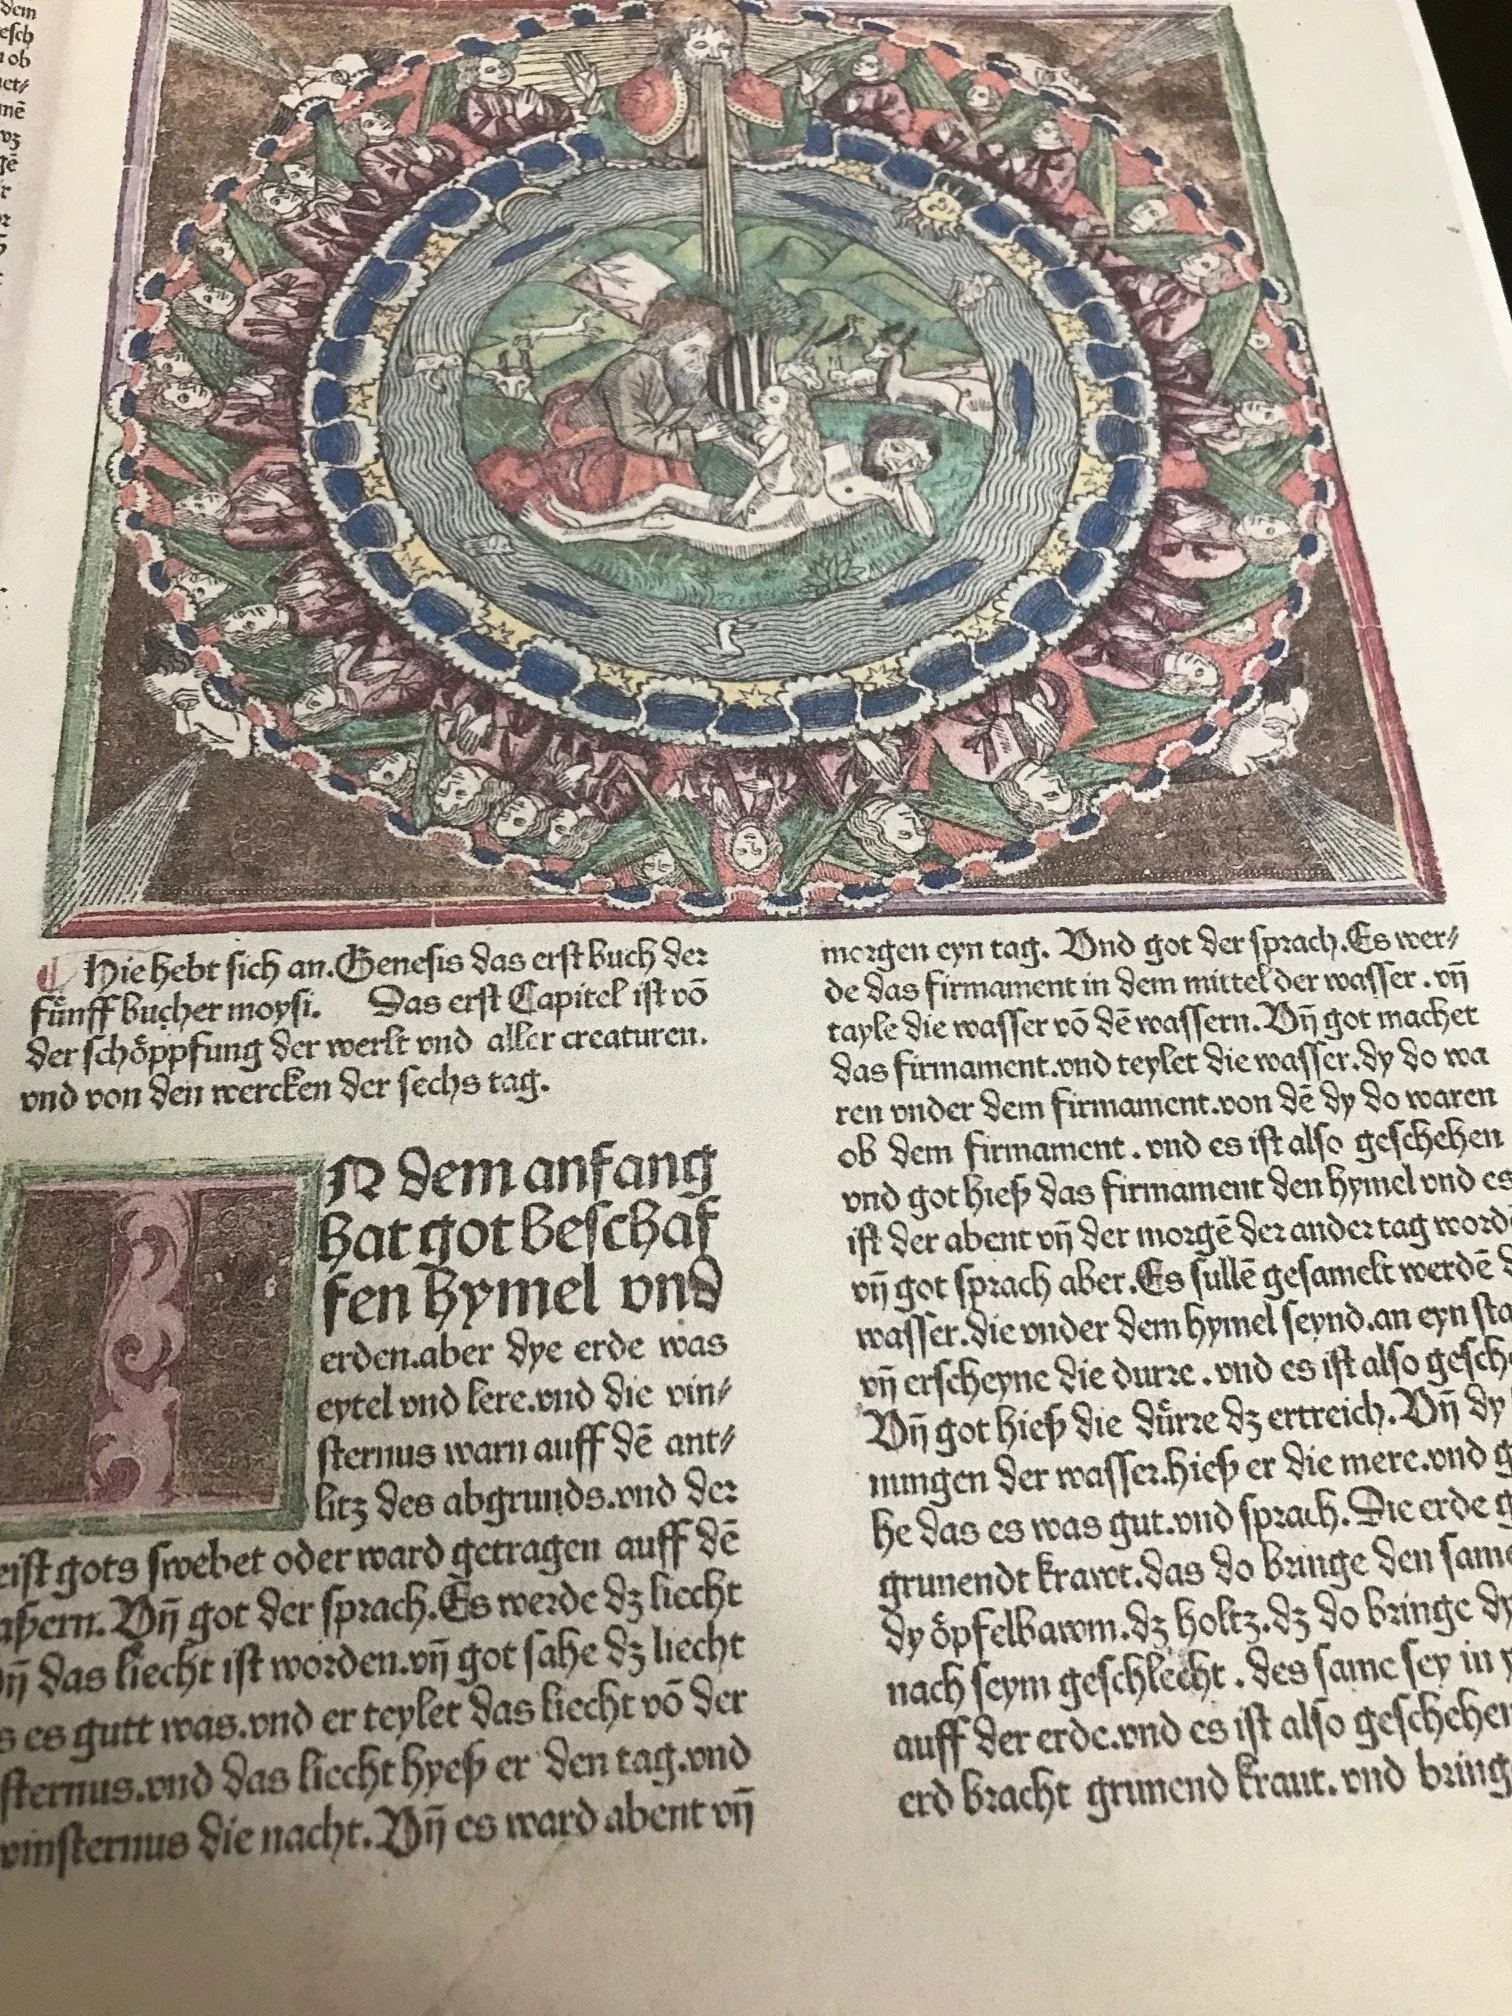 dem
ob
¶ Hie hebt sich an. Genesis das erst buch der
fünff bucher moysi. Das erst Capitel ist vō
der schöppfung der werlt vnd aller creaturen.
vnd von den wercken der sechs tag.
IN dem anfang
hat got beschaf
fen hymel vnd
erden.aber dye erde was
eytel vnd lere.vnd die vin⸗
sternus warn auff dē ant⸗
litz des abgrunds.vnd der
eist gots swebet oder ward getragen auff dē
assern. Vn̄ got der sprach. Es werde dz liecht
vn̄ das liecht ist worden.vn̄ got sahe dz liecht
s es gutt was.vnd er teylet das liecht vō der
sternus.vnd das liecht hyeß er den tag.vnd
vinsternus die nacht. Vn̄ es ward abent vn̄
morgen eyn tag. Vnd got der sprach. Es wer⸗
de das firmament in dem mittel der wasser. vn̄
tayle die wasser vō dē wassern. Vn̄ got machet
das firmament.vnd teylet die wasser.dy do wa
ren vnder dem firmament.von dē dy do waren
ob dem firmament. vnd es ist also geschehen
vnd got hieß das firmament den hymel vnd es
ist der abent vn̄ der morgē der ander tag word
vn̄ got sprach aber. Es sullē gesamelt werdē d
wasser.die vnder dem hymel seynd.an eyn sta
vn̄ erscheyne die durre. vnd es ist also gesch
Vn̄ got hieß die dürre dz ertreich. Vn̄ dy
nungen der wasser.hieß er die mere.vnd g
he das es was gut.vnd sprach. Die erde g
grunendt krawt.das do bringe den same
dy öpfelbawm.dz holtz.dz do bringe dy
nach seym geschlecht. des same sey in
auff der erde.vnd es ist also geschehen
erd bracht grunend kraut. vnd bring